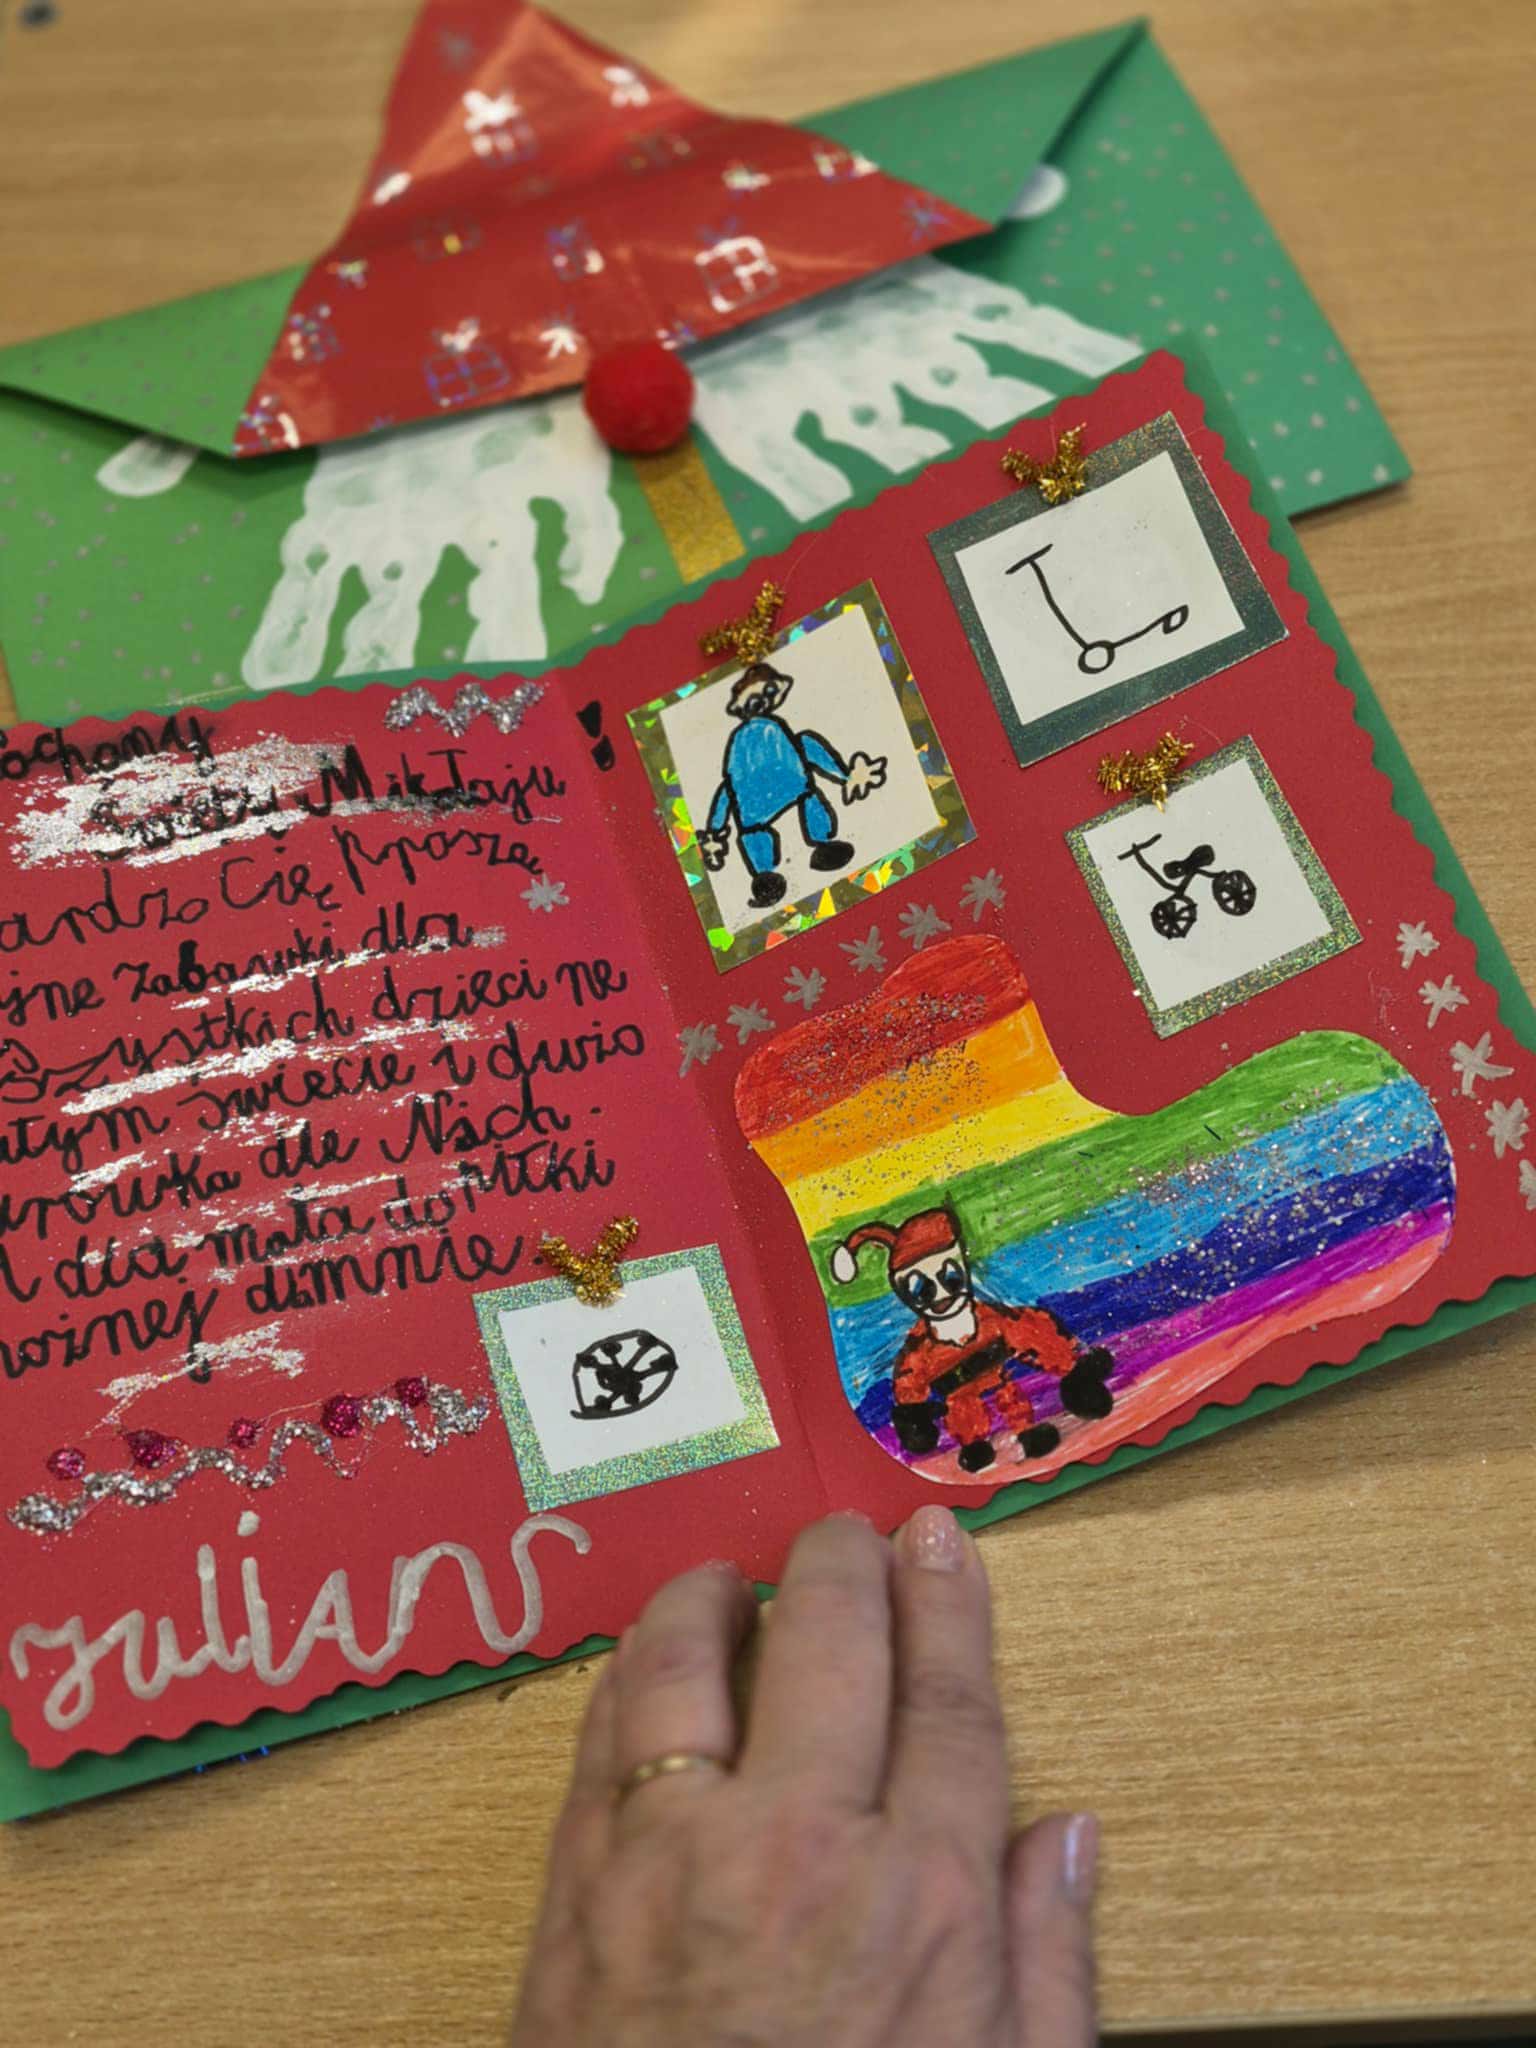 ochany
Święty Mikołaju!
ardzo Cię Pproszę
jne zabawki dla
szystkich dzieci ne
ałym świecie i dużo
urówka dle Nich.
dla mata do Piłki
nożnej dlmnie.
Julian